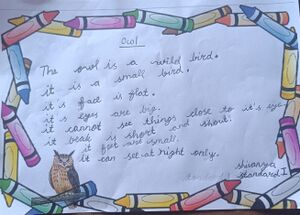 Owl
The owl is a wild bird.
it is a small bird.
it's fact is flat.
it's eyes are big.
it cannot see things close to it's eye
it beak is short and shout.
it feet are small.
it can set at night only.
shivanya
standard I